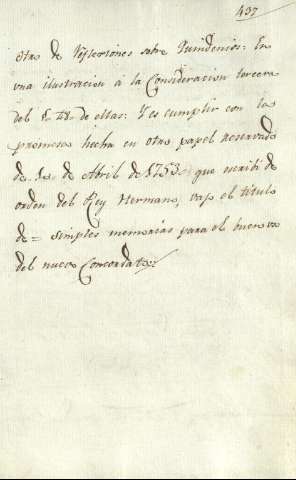 437
otras de Reflexiones sobre Quindenios: En
una ilustracion á la Consideracion tercera
del de ellas: Y es cumplir con la
promesa hecha en otro papel reservado
de 10 de Abril de 1753 que escribi de
orden del Rey Hermano, vajo el titulo
de = Simples memorias para el buen uso
del nuevo Concordato